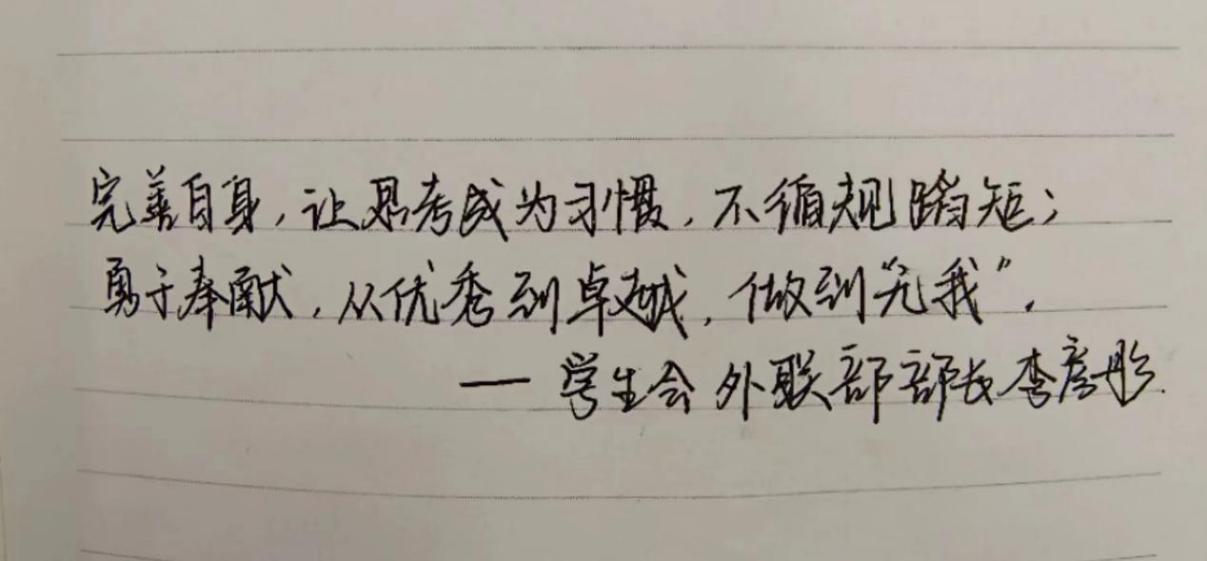 完善自身,让思考成为习惯,不循规蹈矩;
勇于奉献,从优秀到卓越,做到“无我”.
— 学生会 外联部部长李彦彤.